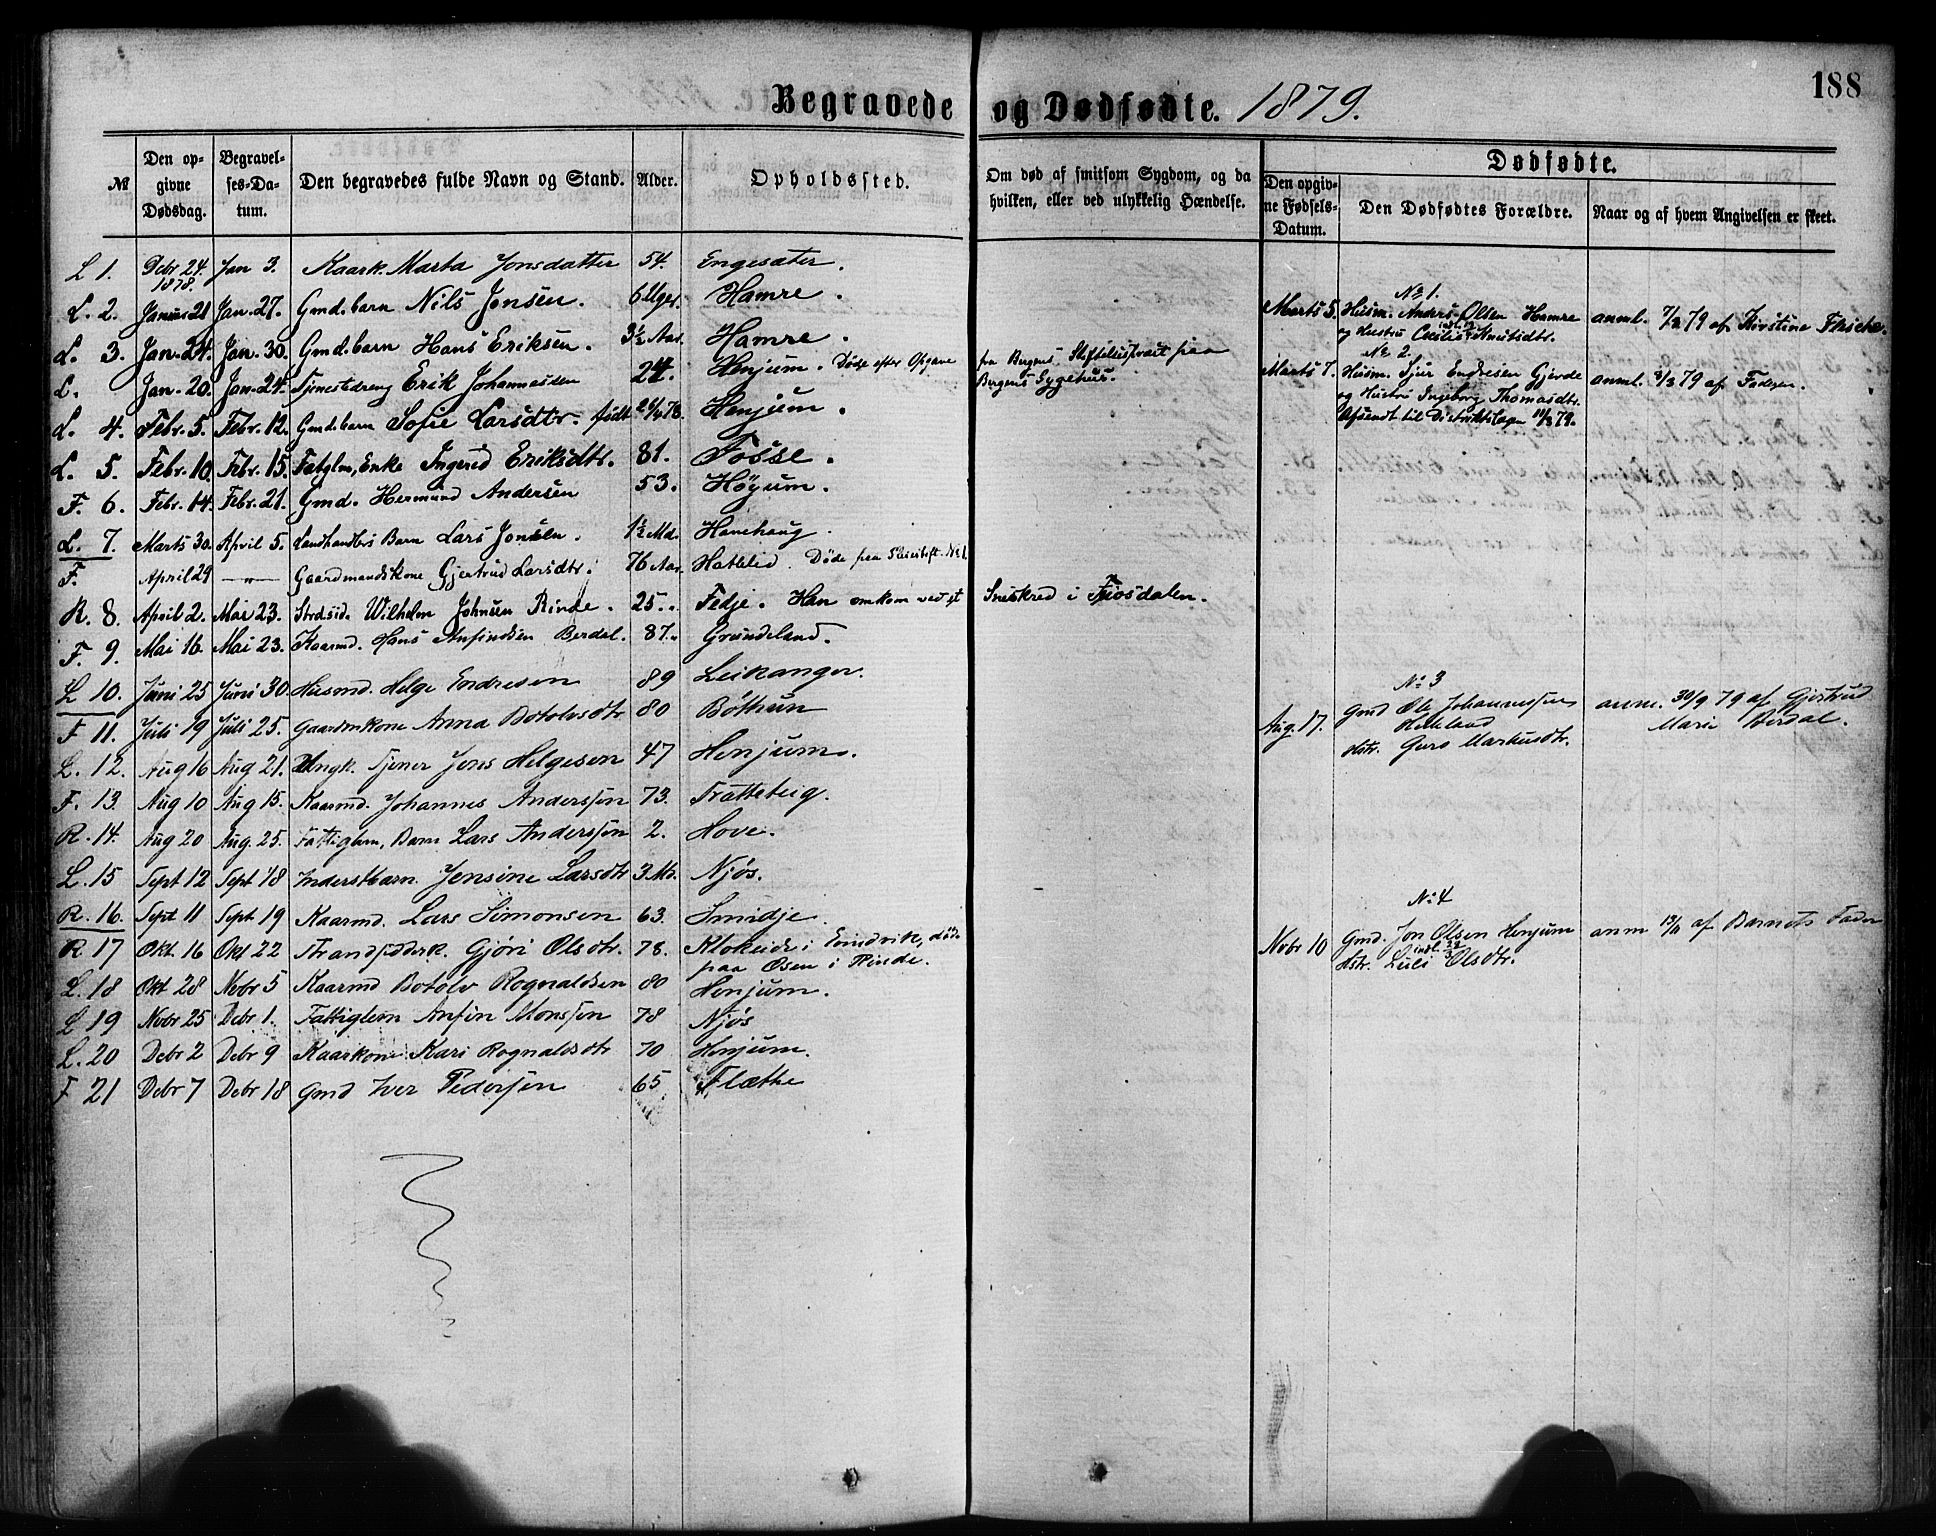 188
Begravede og Dødfødte. 1879.
№ Den opgivne Dødsdag. Begravelses-Datum. Den begravedes fulde Navn og Stand. Alder. Opholdssted. Om død af smitsom Sygdom, og da hvilken, eller ved ulykkelig Hændelse.
Dødfødte.
Den opgivne Fødsels-Datum. Den Dødfødtes Forældre. Naar og af hvem Angivelsen er skeet.
L 1. Debr 24. 1878. Jan 3. Kaark. Marta Jonsdatter 54. Engesæter.
L. 2. Januar 21 Jan. 27. Gmd. barn Nils Jonsen. 6 Uger. Hamre.
L. 3. Jan. 24. Jan. 30. Gmd. barn Hans Eriksen. 3½ Aar. Hamre.
L. Jan. 20. Jan. 24. Tjenestedreng Erik Johannessen 24. Henjum. Døde efter Opgave fra Bergens Stiftelsespræst paa Bergens Sygehus.
L. 4. Febr. 5. Febr. 12. Gmd. barn Sofie Larsdtr. født Henjum.
L. 5. Febr. 10. Febr. 15. Fatglm, Enke Ingerid Eriksdtr. 81. Fosse.
F. 6. Febr. 14. Febr. 21. Gmd. Hermund Andersen 53. Høyum.
L. 7. Marts 30. April 5. Landhandlers Barn Lars Jonsen. 1½ Md. Hanehaug.
F. April 29 —"— Gaardmandskone Gjertrud Larsdtr. 76 Aar. Hatlelid. Døde paa
R. 8. April 2. Mai 23. Strdsid. Wilhelm Johnsen Rinde. 25. Fedje. Han omkom ved et Sneskred i Fjosdalen.
F. 9. Mai 16. Mai 23. Kaarmd. Hans Anfindsen Berdal. 87. Grindeland.
L 10. Juni 25 Juni 30. Husmd. Helge Endresen 89 Leikanger.
F 11. Juli 19 Juli 25. Gaardmkone Anna Botolvsdtr 80 Bøthun
L. 12. Aug 16 Aug 21. Ungk. Tjener Jens Helgesen 47 Henjum.
F. 13. Aug 10 Aug 15. Kaarmd. Johannes Anderssøn 73. Trætteteig.
R. 14. Aug 20 Aug. 25. Fattiglem, Barn Lars Anderssøn 2. Hove.
L. 15 Sept 12 Sept 18 Inderstbarn. Jensine Larsdtr 3 Mr. Njøs.
R. 16. Sept 11 Sept 19 Kaarmd. Lars Simonsen 63. Smidje.
R 17 Okt 16 Okt 22 Strandsidderk. Gjøri Olsdtr. 78. Klokeide i Evindvik, døde paa Osen i Rinde.
L. 18 Okt 28 Nobr 5 Kaarmd Botolv Rognaldsen 80 Henjum.
L 19 Nobr 25 Debr 1. Fattiglem Anfin Monssøn 78 Njøs
L. 20 Debr 2 Debr 9 Kaarkone Kari Rognaldsdtr 70 Henjum.
F 21 Debr 7 Debr 18 Gmd Iver Pedersen 65 Flæthe
№ 1.
Marts 5. Husm. Anders Olsen Hamre anml. 7/3 79 af Kirstine
og Hustru Cecilia Knutsdtr.
№ 2.
Marts 7. Husm. Sjur Endresen Gjerde anml. 9/3 79 af Faderen.
og Hustru Ingeborg Thomasdtr.
Afsendt til Distriktslægen 11/3 79.
№ 3
Aug. 17. Gmd Ole Johannessen anm. 30/9 79 af Gjertrud
Helleland Marie Aerdal.
Hstr. Guro Markusdtr.
№ 4
Nobr 10 Gmd. Jon Olsen Henjum anm 13/11 af Barnets Fader
Hstr. Olsdtr.